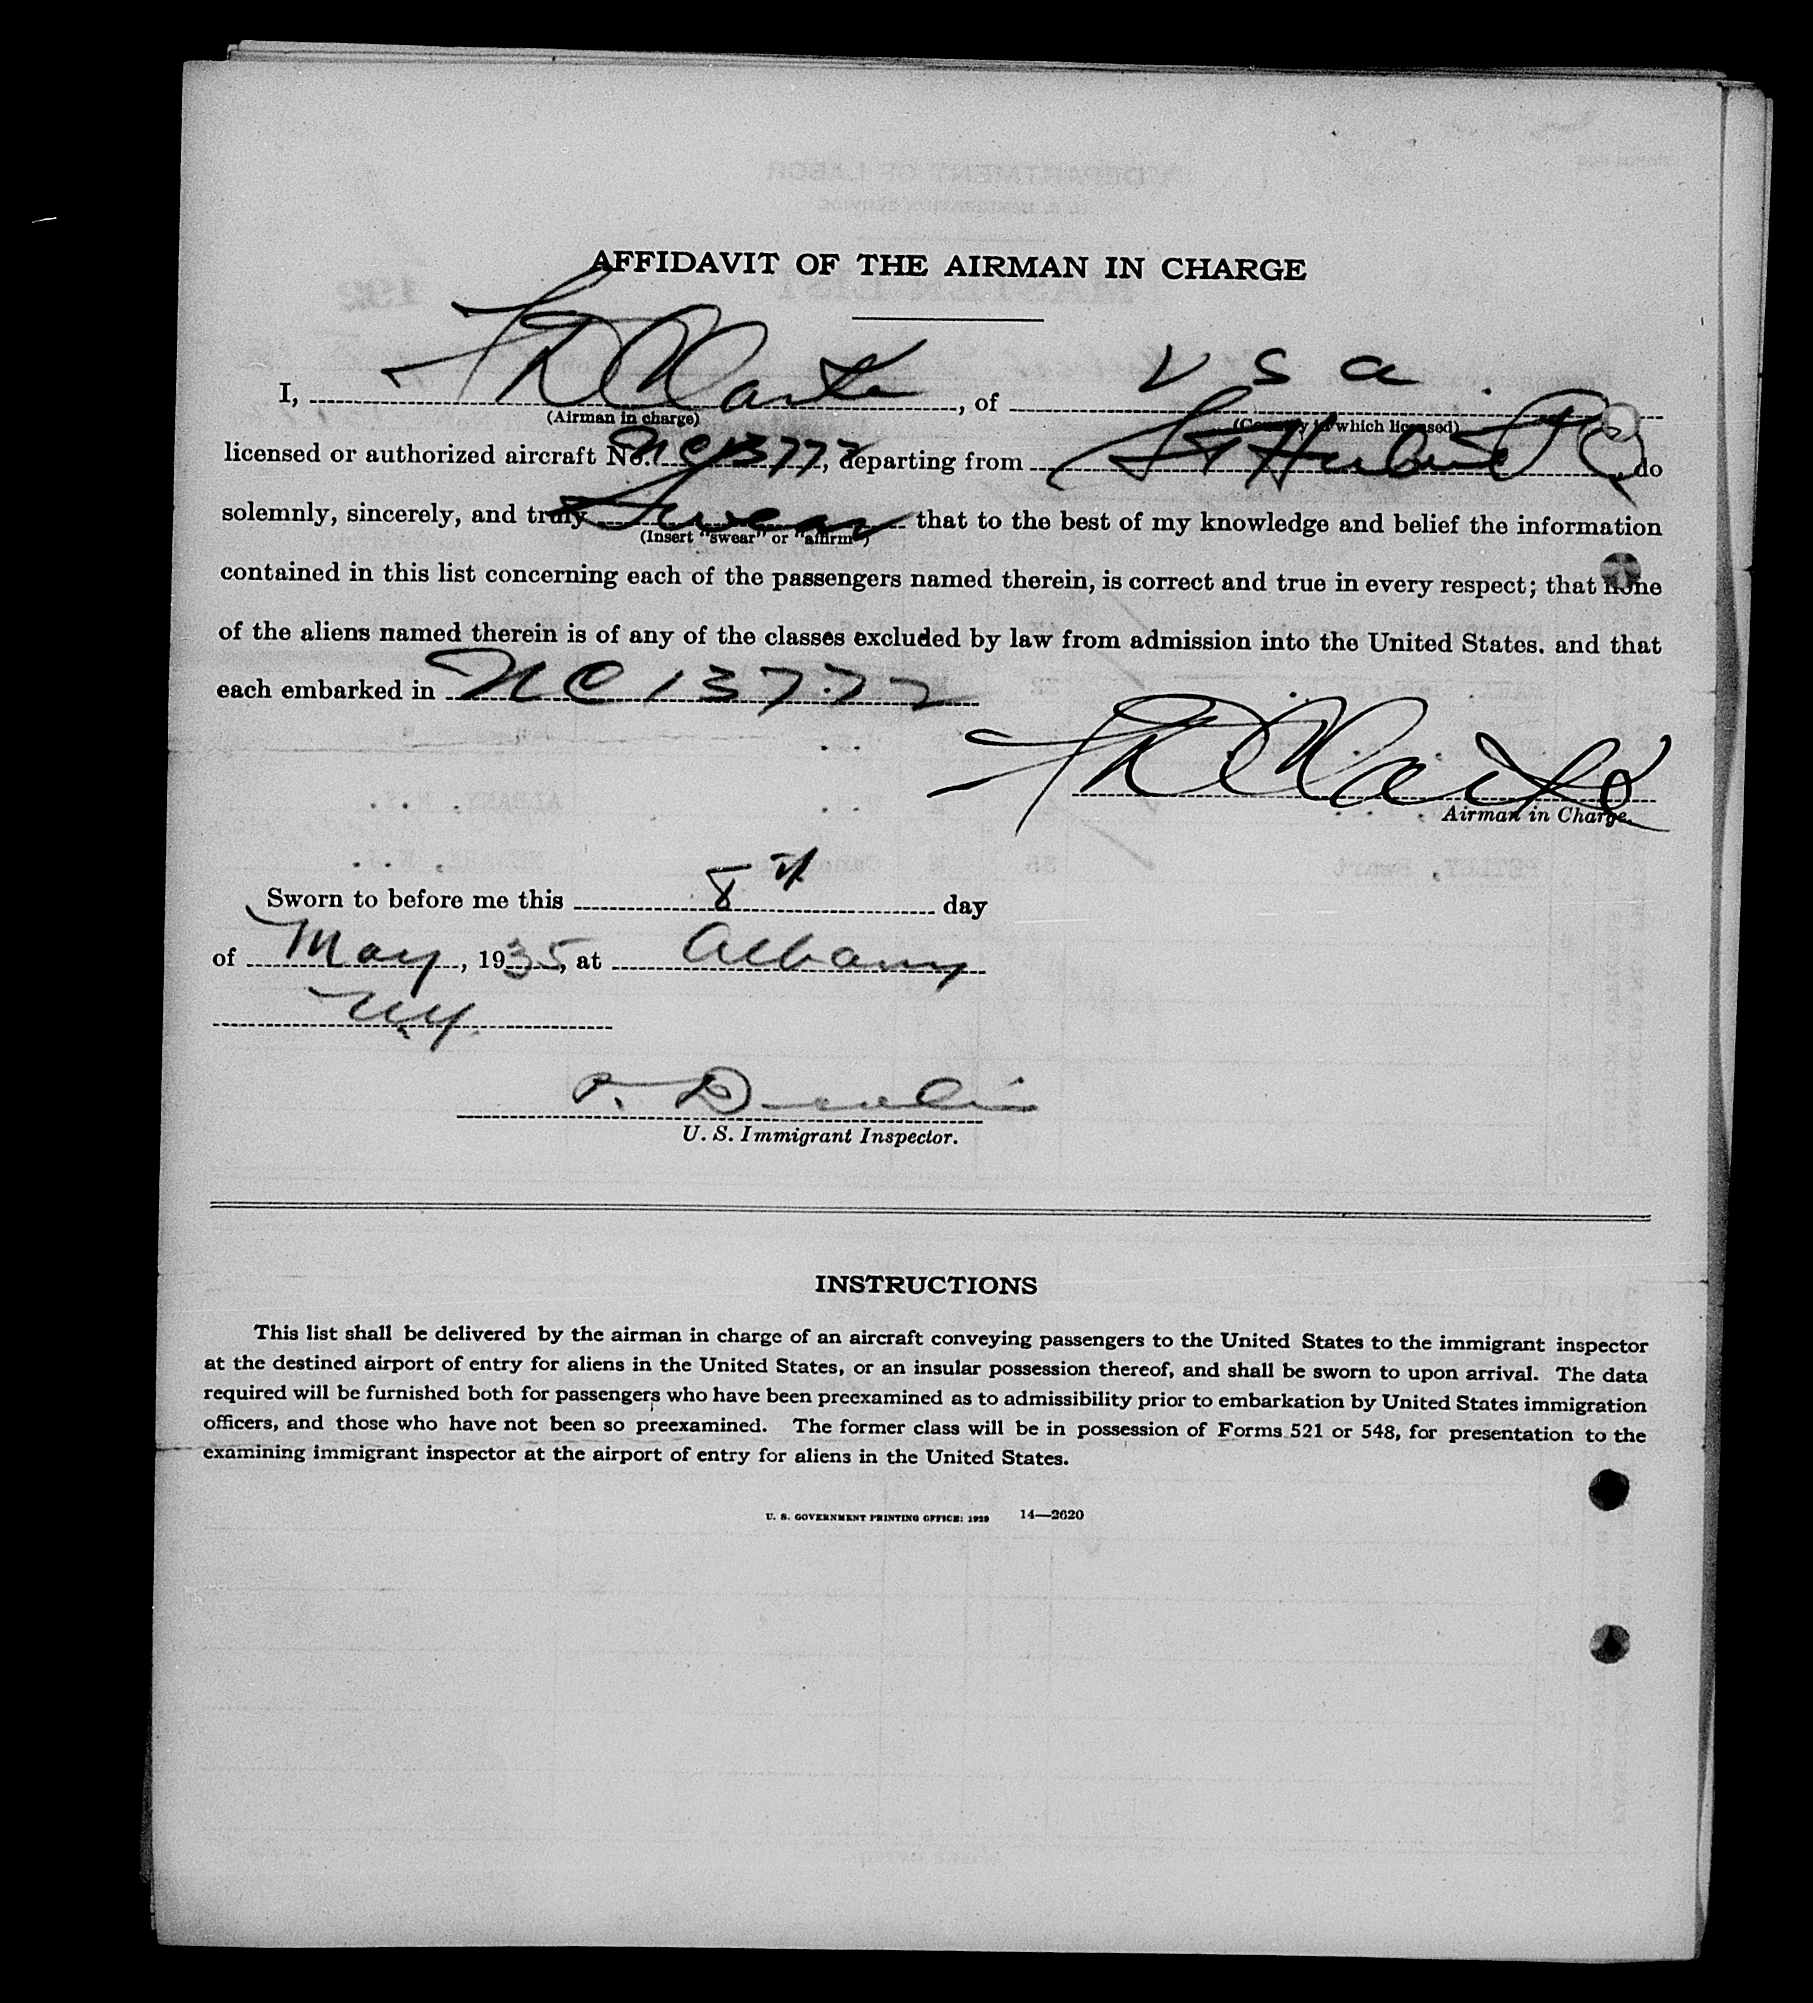 AFFIDAVIT OF THE AIRMAN IN CHARGE
I, , of U S A
(Airman in charge) (Country in which licensed)
licensed or authorized aircraft No. NC13772, departing from St Hubert P Q, do
solemnly, sincerely, and truly swear that to the best of my knowledge and belief the information
(Insert "swear" or "affirm")
contained in this list concerning each of the passengers named therein, is correct and true in every respect; that none
of the aliens named therein is of any of the classes excluded by law from admission into the United States. and that
each embarked in NC 13772
Airman in Charge.
Sworn to before me this 8th day
of May, 1935, at Albany
N.Y.
U. S. Immigrant Inspector.
INSTRUCTIONS
This list shall be delivered by the airman in charge of an aircraft conveying passengers to the United States to the immigrant inspector
at the destined airport of entry for aliens in the United States, or an insular possession thereof, and shall be sworn to upon arrival. The data
required will be furnished both for passengers who have been preexamined as to admissibility prior to embarkation by United States immigration
officers, and those who have not been so preexamined. The former class will be in possession of Forms 521 or 548, for presentation to the
examining immigrant inspector at the airport of entry for aliens in the United States.
U. S. GOVERNMENT PRINTING OFFICE: 1929 14—2620